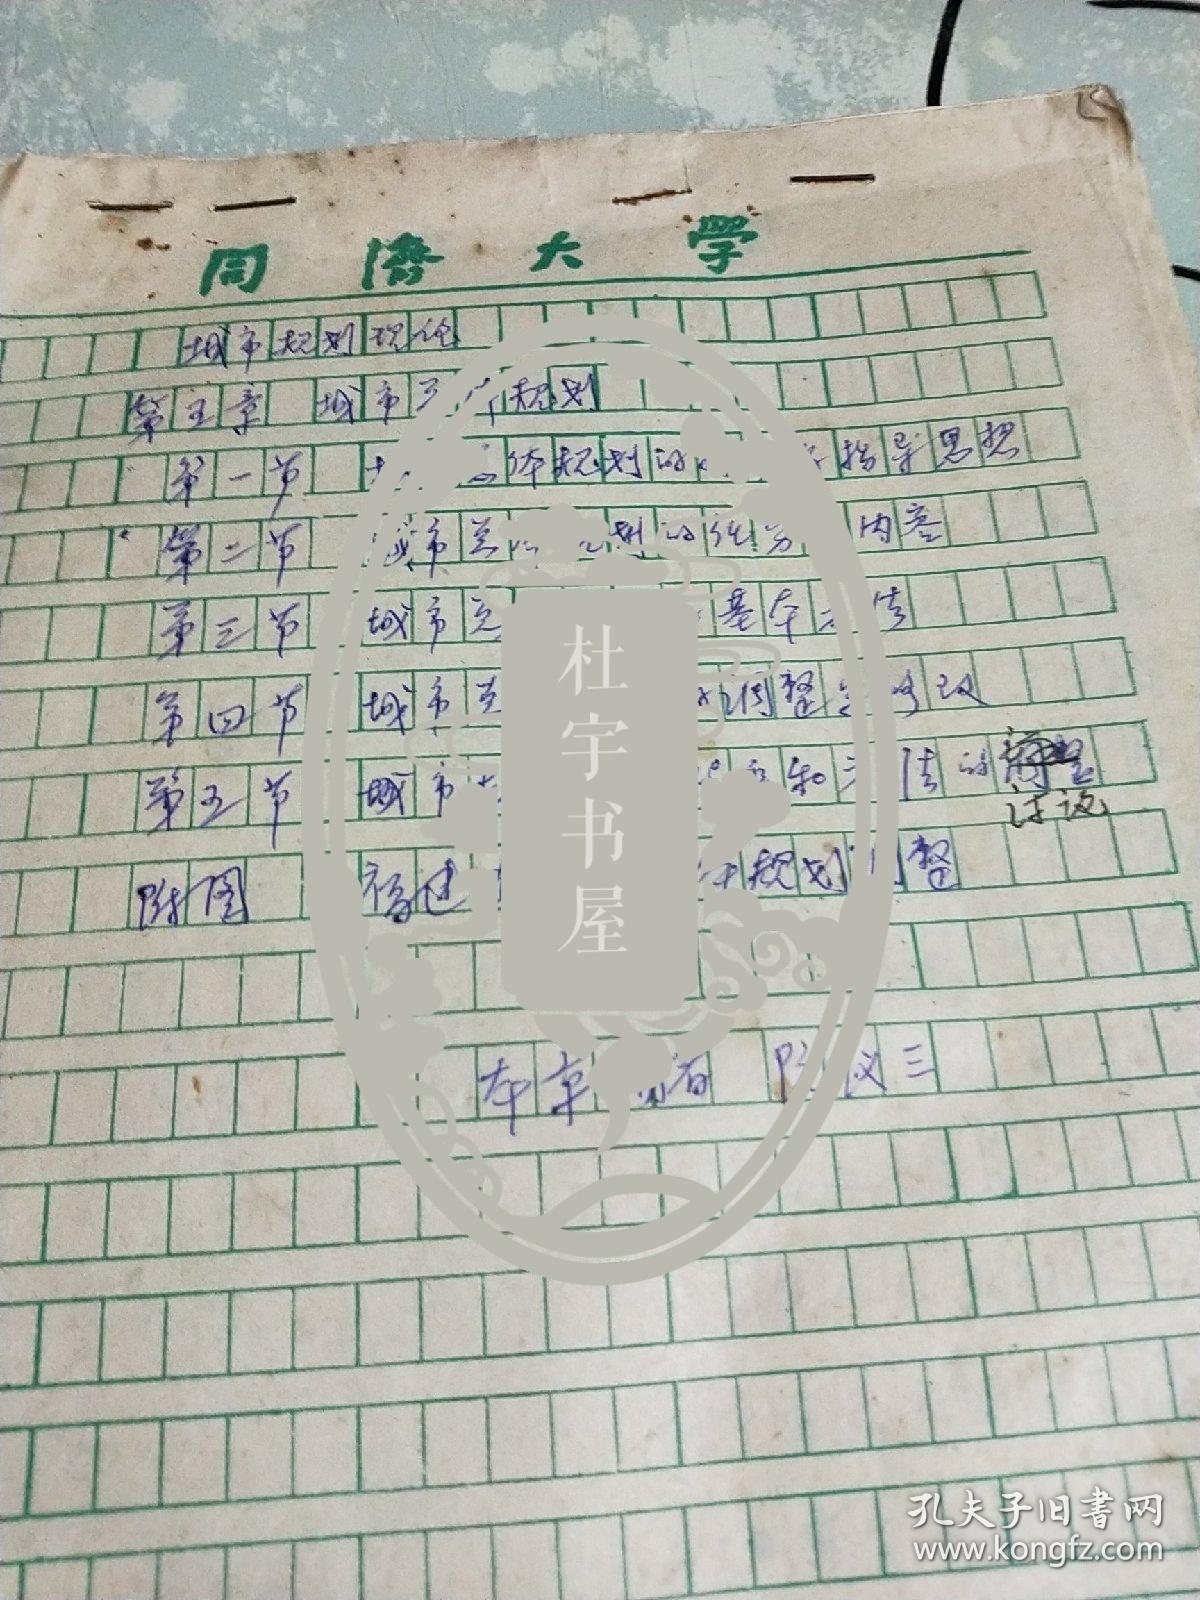 同濟大学
城市规划理论
第五章 城市总体规划
第一节 总体规划的 指导思想
第二节 城市总体规划的任务 内容
第三节 城市总 基本方法
第四节 城市总 的调整与修改
第五节 城市 和方法的
讨论
附图 福建 规划调整
本章 阮仪三
杜宇书屋
孔夫子旧书网
www.kongfz.com